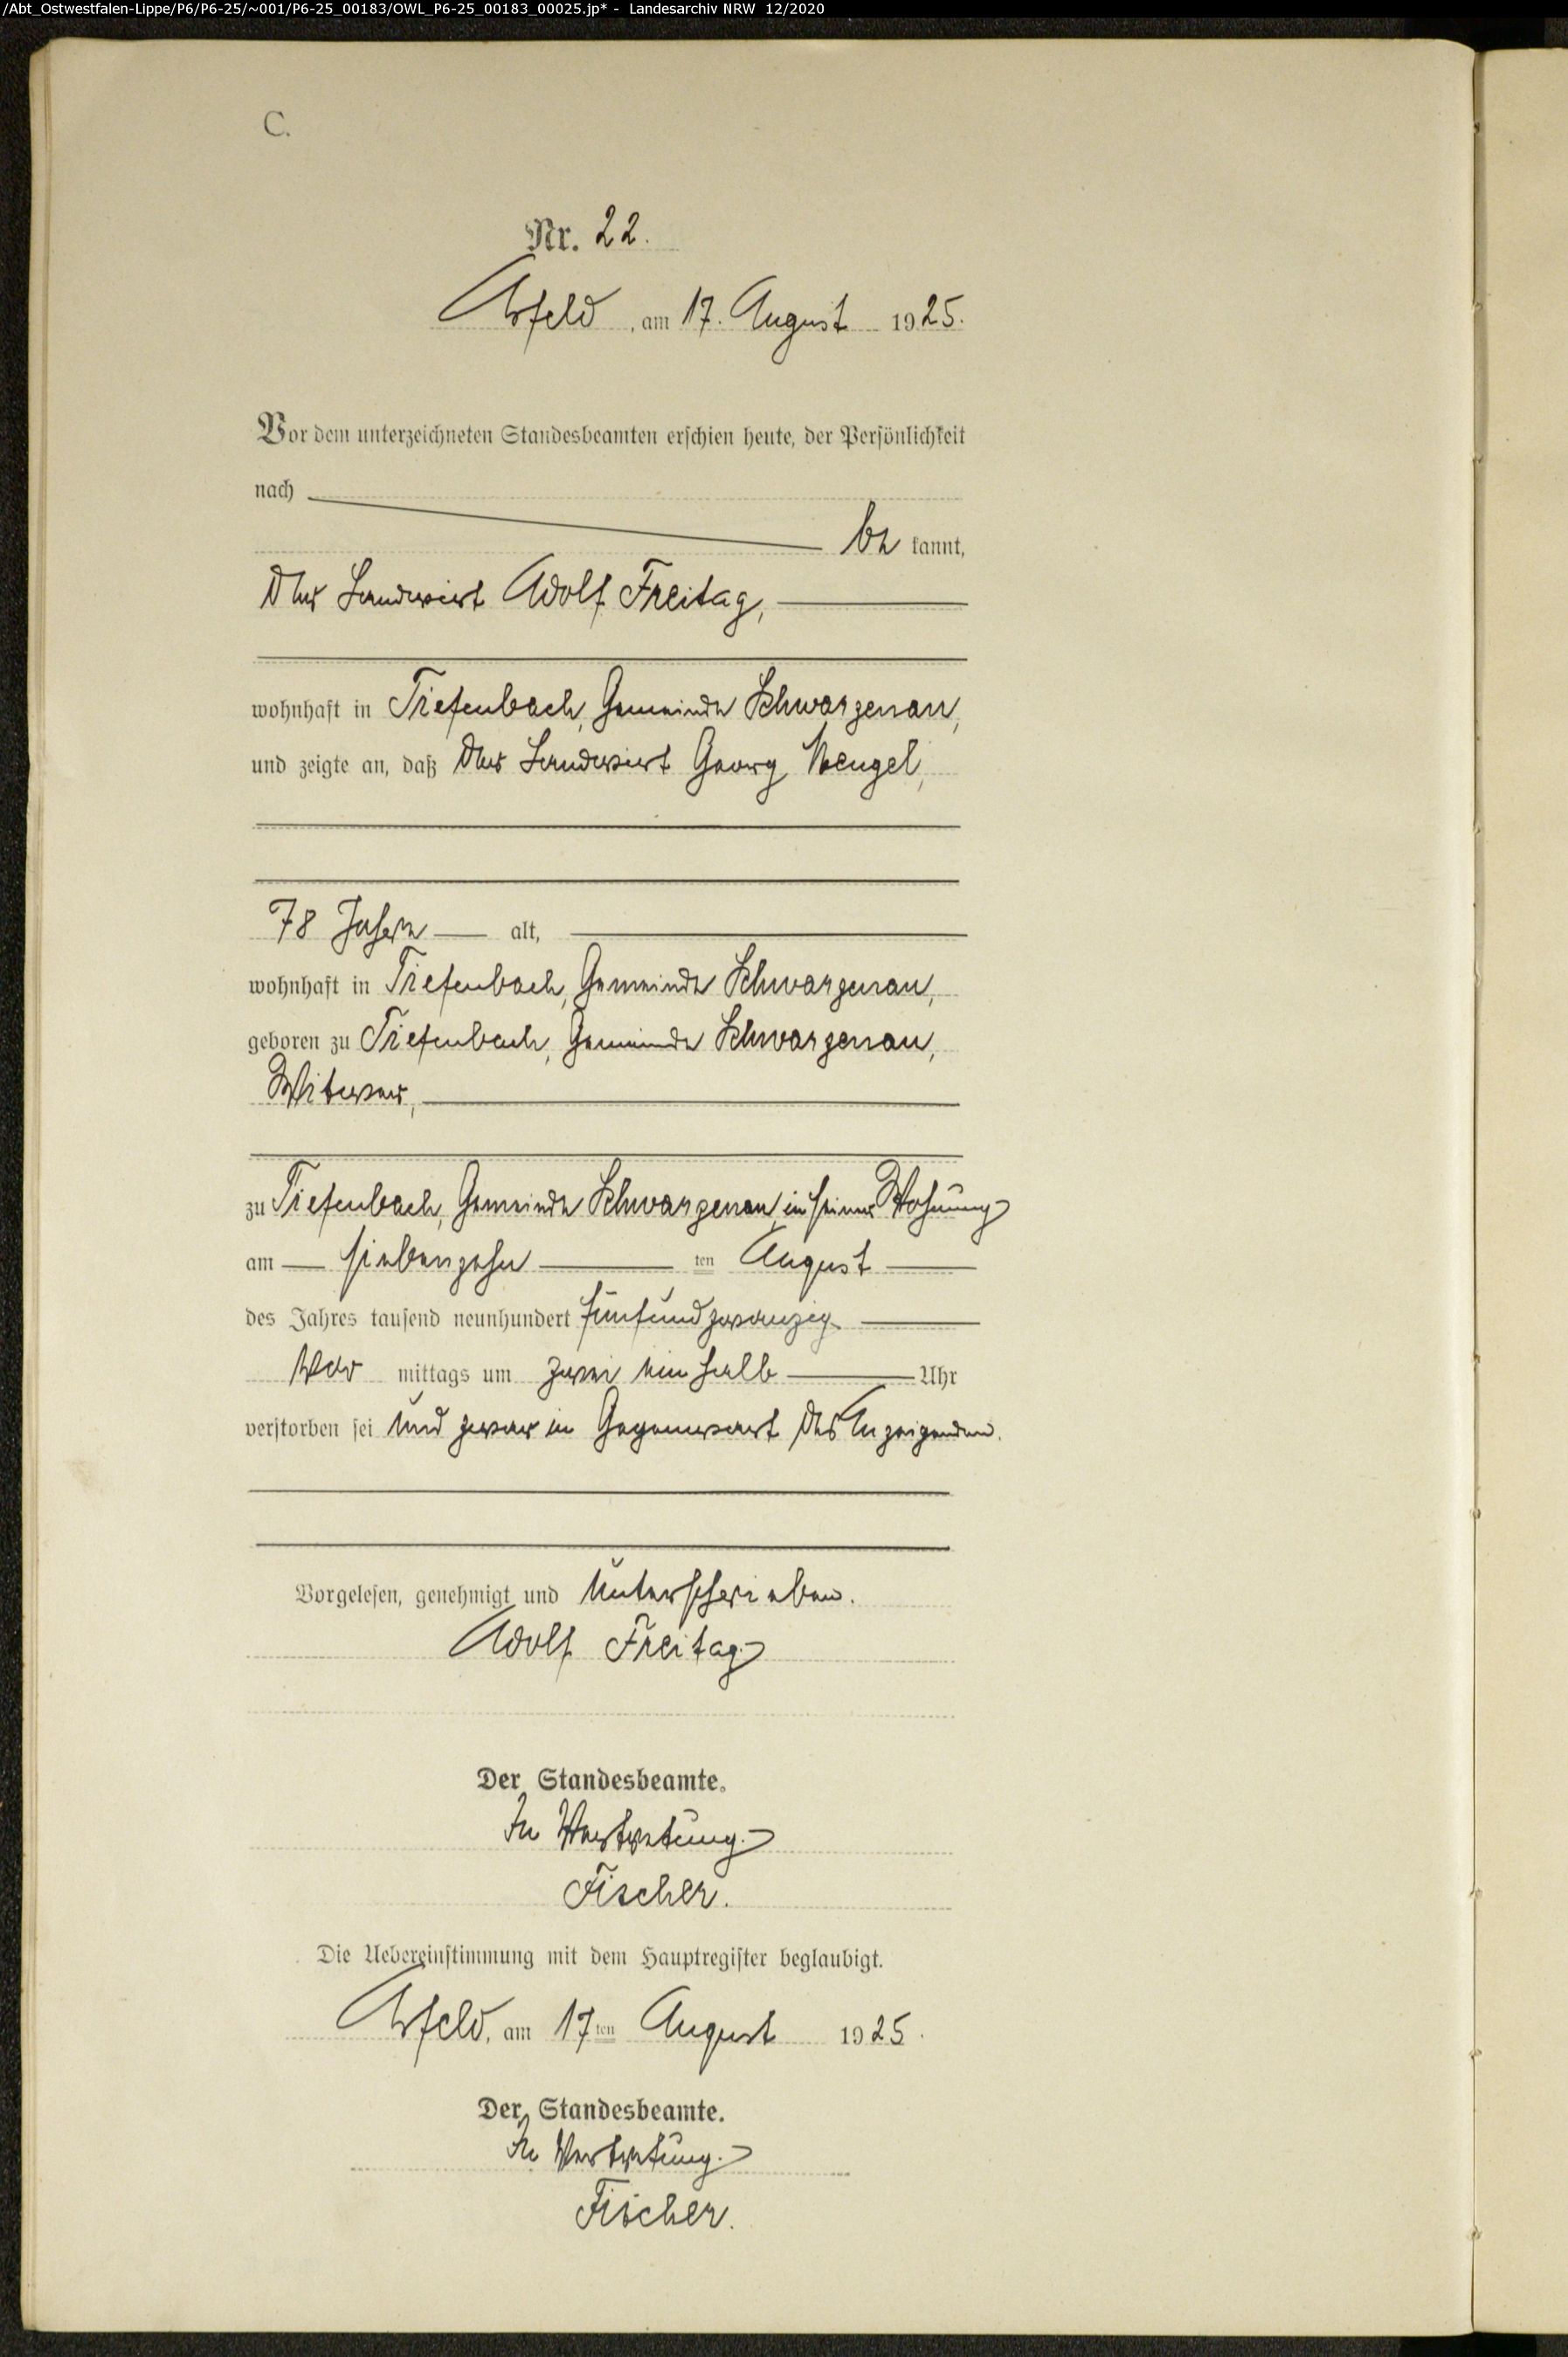 /Abt_Ostwestfalen-Lippe/P6/P6-25/~001/P6-25_00183/OWL_P6-25_00183_00025.jp* - Landesarchiv NRW 12/2020
C.
Nr. 22.
Arfeld, am 17. August 1925.
Vor dem unterzeichneten Standesbeamten erschien heute, der Persönlichkeit
nach
be kannt,
der Landwirt Adolf Freitag,
wohnhaft in Tiefenbach, Gemeinde Schwarzenau,
und zeigte an, daß der Landwirt Georg Wengel,
78 Jahre alt,
wohnhaft in Tiefenbach, Gemeinde Schwarzenau,
geboren zu Tiefenbach, Gemeinde Schwarzenau,
Witwer,
zu Tiefenbach, Gemeinde Schwarzenau, in seiner Wohnung
am siebenzehn ten August
des Jahres tausend neunhundert fünfundzwanzig
vor mittags um zwei ein halb Uhr
verstorben sei und zwar in Gegenwart des Anzeigenden.
Vorgelesen, genehmigt und unterschrieben.
Adolf Freitag
Der Standesbeamte.
In Vertretung.
Fischer.
Die Uebereinstimmung mit dem Hauptregister beglaubigt.
Arfeld, am 17ten August 1925.
Der Standesbeamte.
In Vertretung.
Fischer.